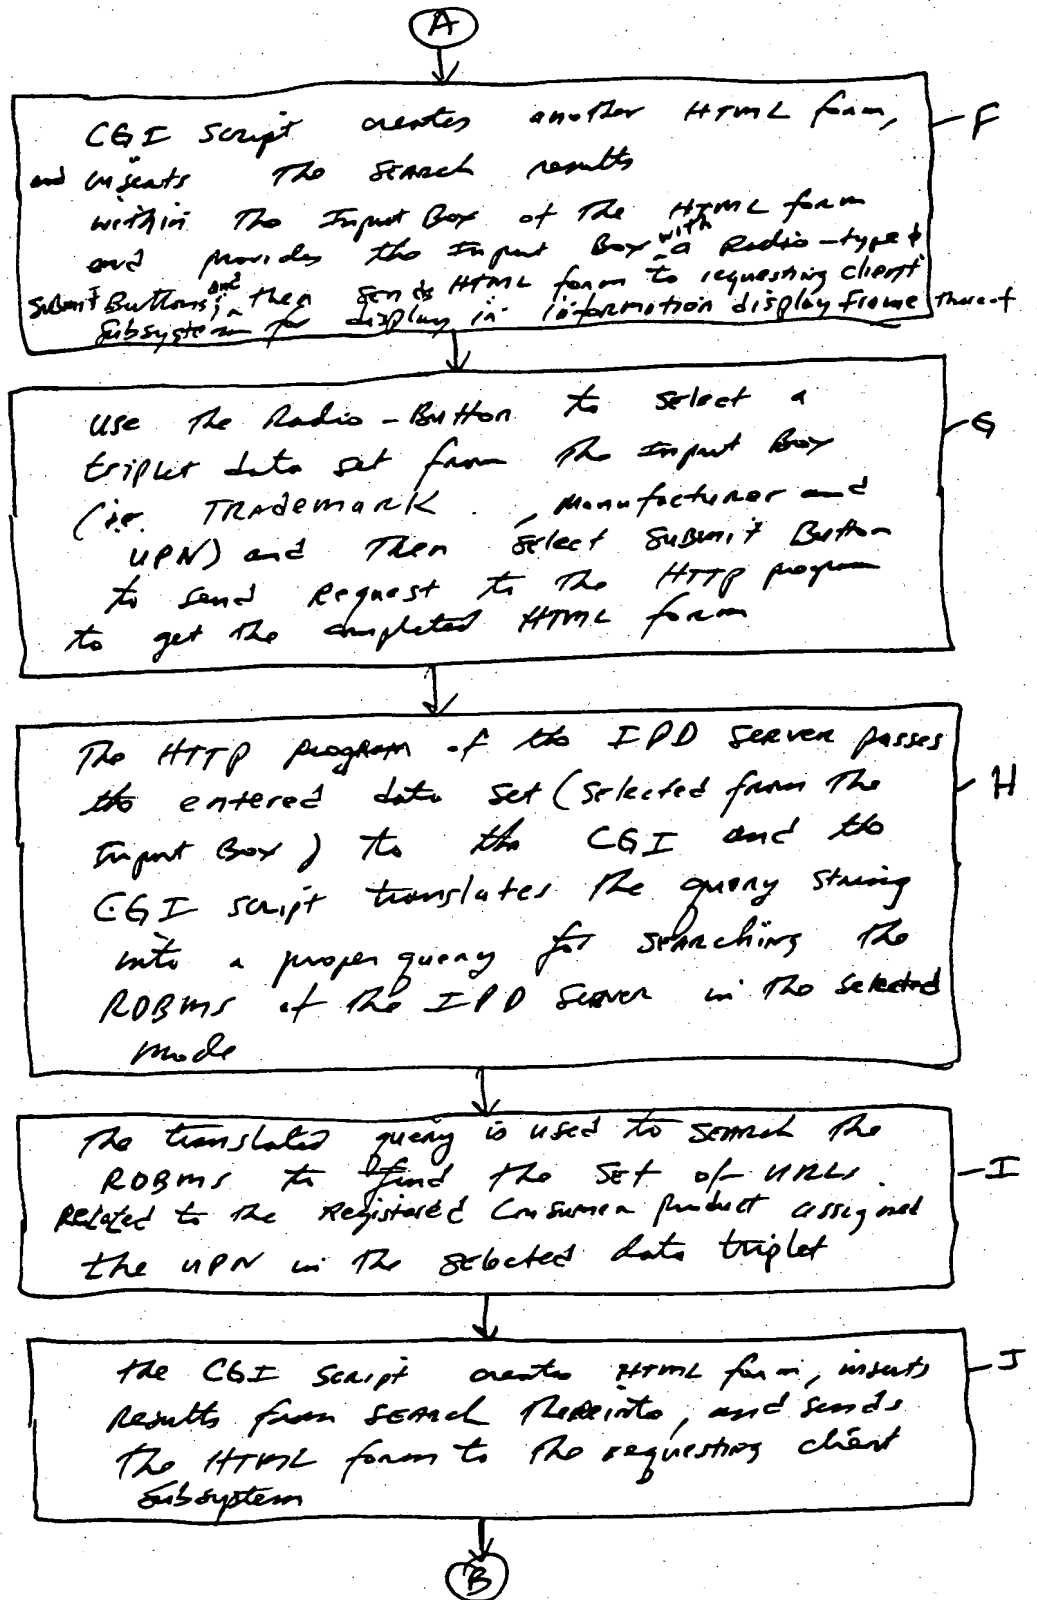 A
CGI Script creates another HTML form,
and inserts The SEARCH results
within The Input Box of The HTML form
and provides the Input Box with a Radio-type &
Submit Buttons; and then sends HTML form to requesting client
Subsystem for display in information display frame thereof
F
use the Radio-Button to select a
triplet data set from The Input Box
(i.e. TRademark , Manufacturer and
UPN) and Then select Submit Button
to send Request to The HTTP program
to get the completed HTML form
G
The HTTP program of the IPD Server passes
the entered data set (selected from The
Input Box) to the CGI and the
CGI script translates the query string
into a proper query for searching the
RDBMS of the IPD Server in The selected
mode
H
The translated query is used to search the
RDBMS to find the set of URLs
Related to the Registered Consumer product assigned
the UPN in The selected data triplet
I
the CGI Script creates HTML form, inserts
Results from SEARCH Thereinto, and sends
The HTML form to The requesting client
Subsystem
J
B